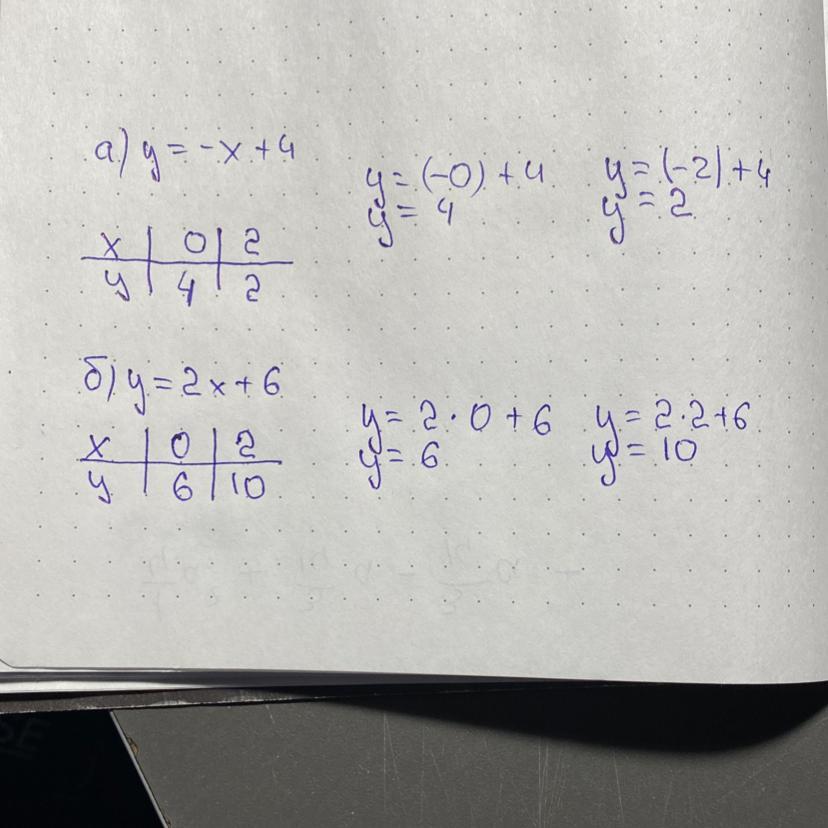 а) y = -x + 4
y = (-0) + 4
y = 4
y = (-2) + 4
y = 2
x | 0 | 2
y | 4 | 2
б) y = 2x + 6
y = 2 · 0 + 6
y = 6
y = 2 · 2 + 6
y = 10
x | 0 | 2
y | 6 | 10